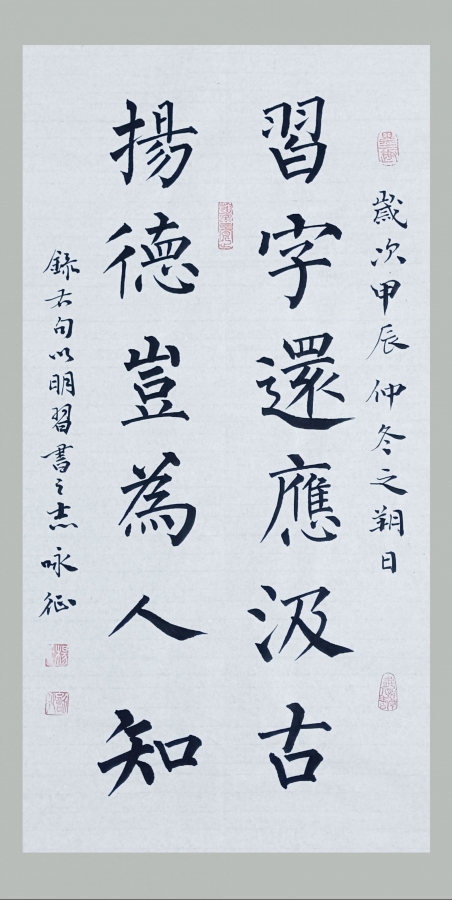 歲次甲辰仲冬之朔日
習字還應汲古
揚德豈為人知
錄右句以明習書之志 咏征